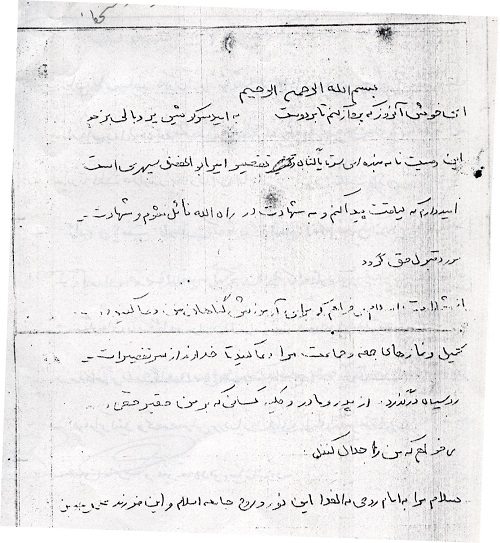 بسم الله الرحمن الرحیم
ای خوش آنروز که پرواز کنم تا بر دوست به امید سر کویش پر و بالی بزنم
این وصیت نامه بنده ای سر تا پا گناه و تقصیر امیر ابوالفضل سپهری است
امیدوارم که لیاقت پیدا کنم و به شهادت در راه الله نائل شوم و شهادت
مورد قبول حق گردد
از شما امت می خواهم که برای آمرزش گناهان من دعا کنید در
کمیل و نمازهای جمعه و جماعت مرا دعا کنید تا خداوند از سر تقصیرات
رو سیاه درگذرد. از پدر و مادر و کلیه کسانی که بر من حقیر حقی
می خواهم که من را حلال کنند.
سلام مرا به امام روحی له الفدا این نور و روح جامعه اسلام و این فرزند